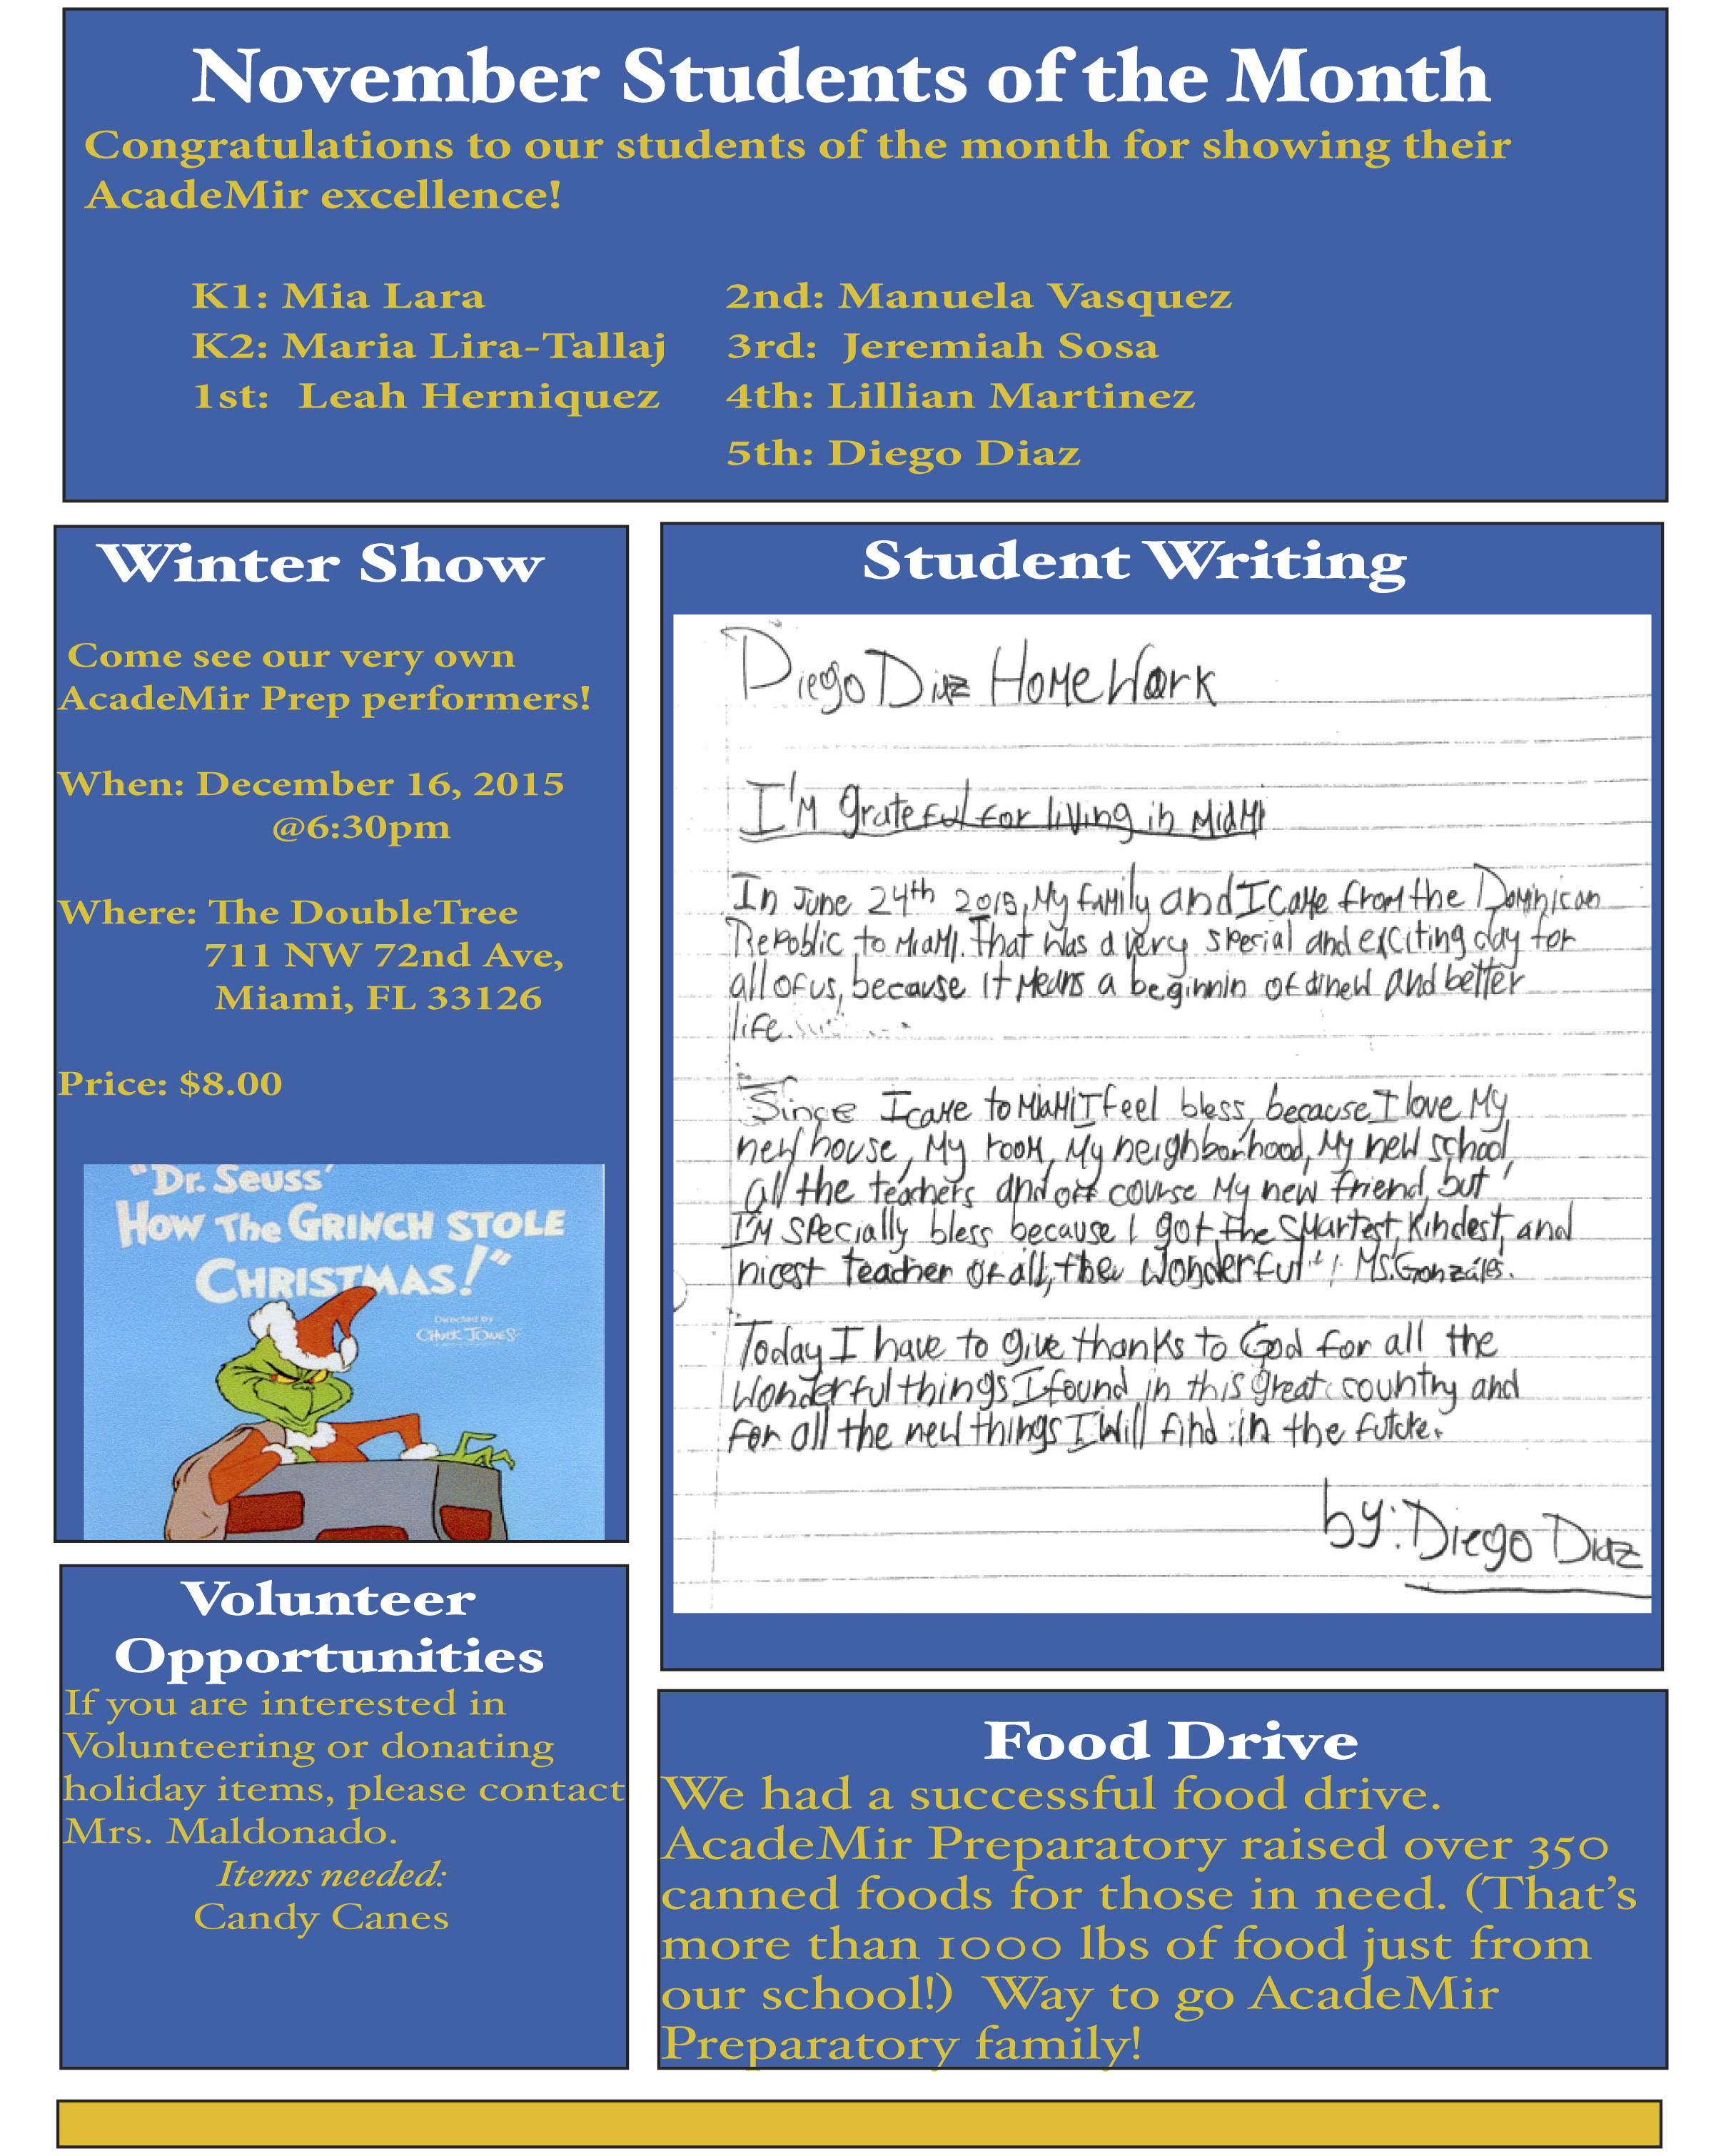 November Students of the Month
Congratulations to our students of the month for showing their
AcadeMir excellence!
K1: Mia Lara
K2: Maria Lira-Tallaj
1st: Leah Herniquez
2nd: Manuela Vasquez
3rd: Jeremiah Sosa
4th: Lillian Martinez
5th: Diego Diaz
Winter Show
Come see our very own
AcadeMir Prep performers!
When: December 16, 2015
@6:30pm
Where: The DoubleTree
711 NW 72nd Ave,
Miami, FL 33126
Price: $8.00
"Dr. Seuss'
How The GRINCH STOLE
CHRISTMAS!"
Directed by
CHUCK JONES
Student Writing
Diego Diaz HomeWork
I'M grateful for living in MiaMI
In June 24th My faMily and I caMe froM the DoMinican
Repoblic to MiaMI. That was a very special and exciting day for
all of us, because it Means a beginnin of a new and better
life.
Since I caMe to MiaMi I feel bless, because I love My
new house, My rooM, My neighborhood, My new school,
all the teachers and off course My new friend, but
I'M specially bless because I got the sMartest, Kindest, and
nicest teacher of all, the wonderful Ms. Gonzáles.
Today I have to give thanks to God for all the
wonderful things I found in this great country and
for all the new things I will find in the
by: Diego Diaz
Volunteer
Opportunities
If you are interested in
Volunteering or donating
holiday items, please contact
Mrs. Maldonado.
Items needed:
Candy Canes
Food Drive
We had a successful food drive.
AcadeMir Preparatory raised over 350
canned foods for those in need. (That's
more than 1000 lbs of food just from
our school!) Way to go AcadeMir
Preparatory family!